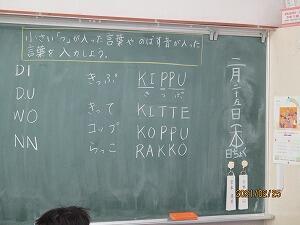 小さい「っ」が入った言葉や のばす音が入った
言葉を入力しよう。
DI
DU
NO
NN
きっぷ KIPPU
き っ ぷ
きって KITTE
コップ KOPPU
らっこ RAKKO
二月二十五日(木)
日ちょく
2021/02/25